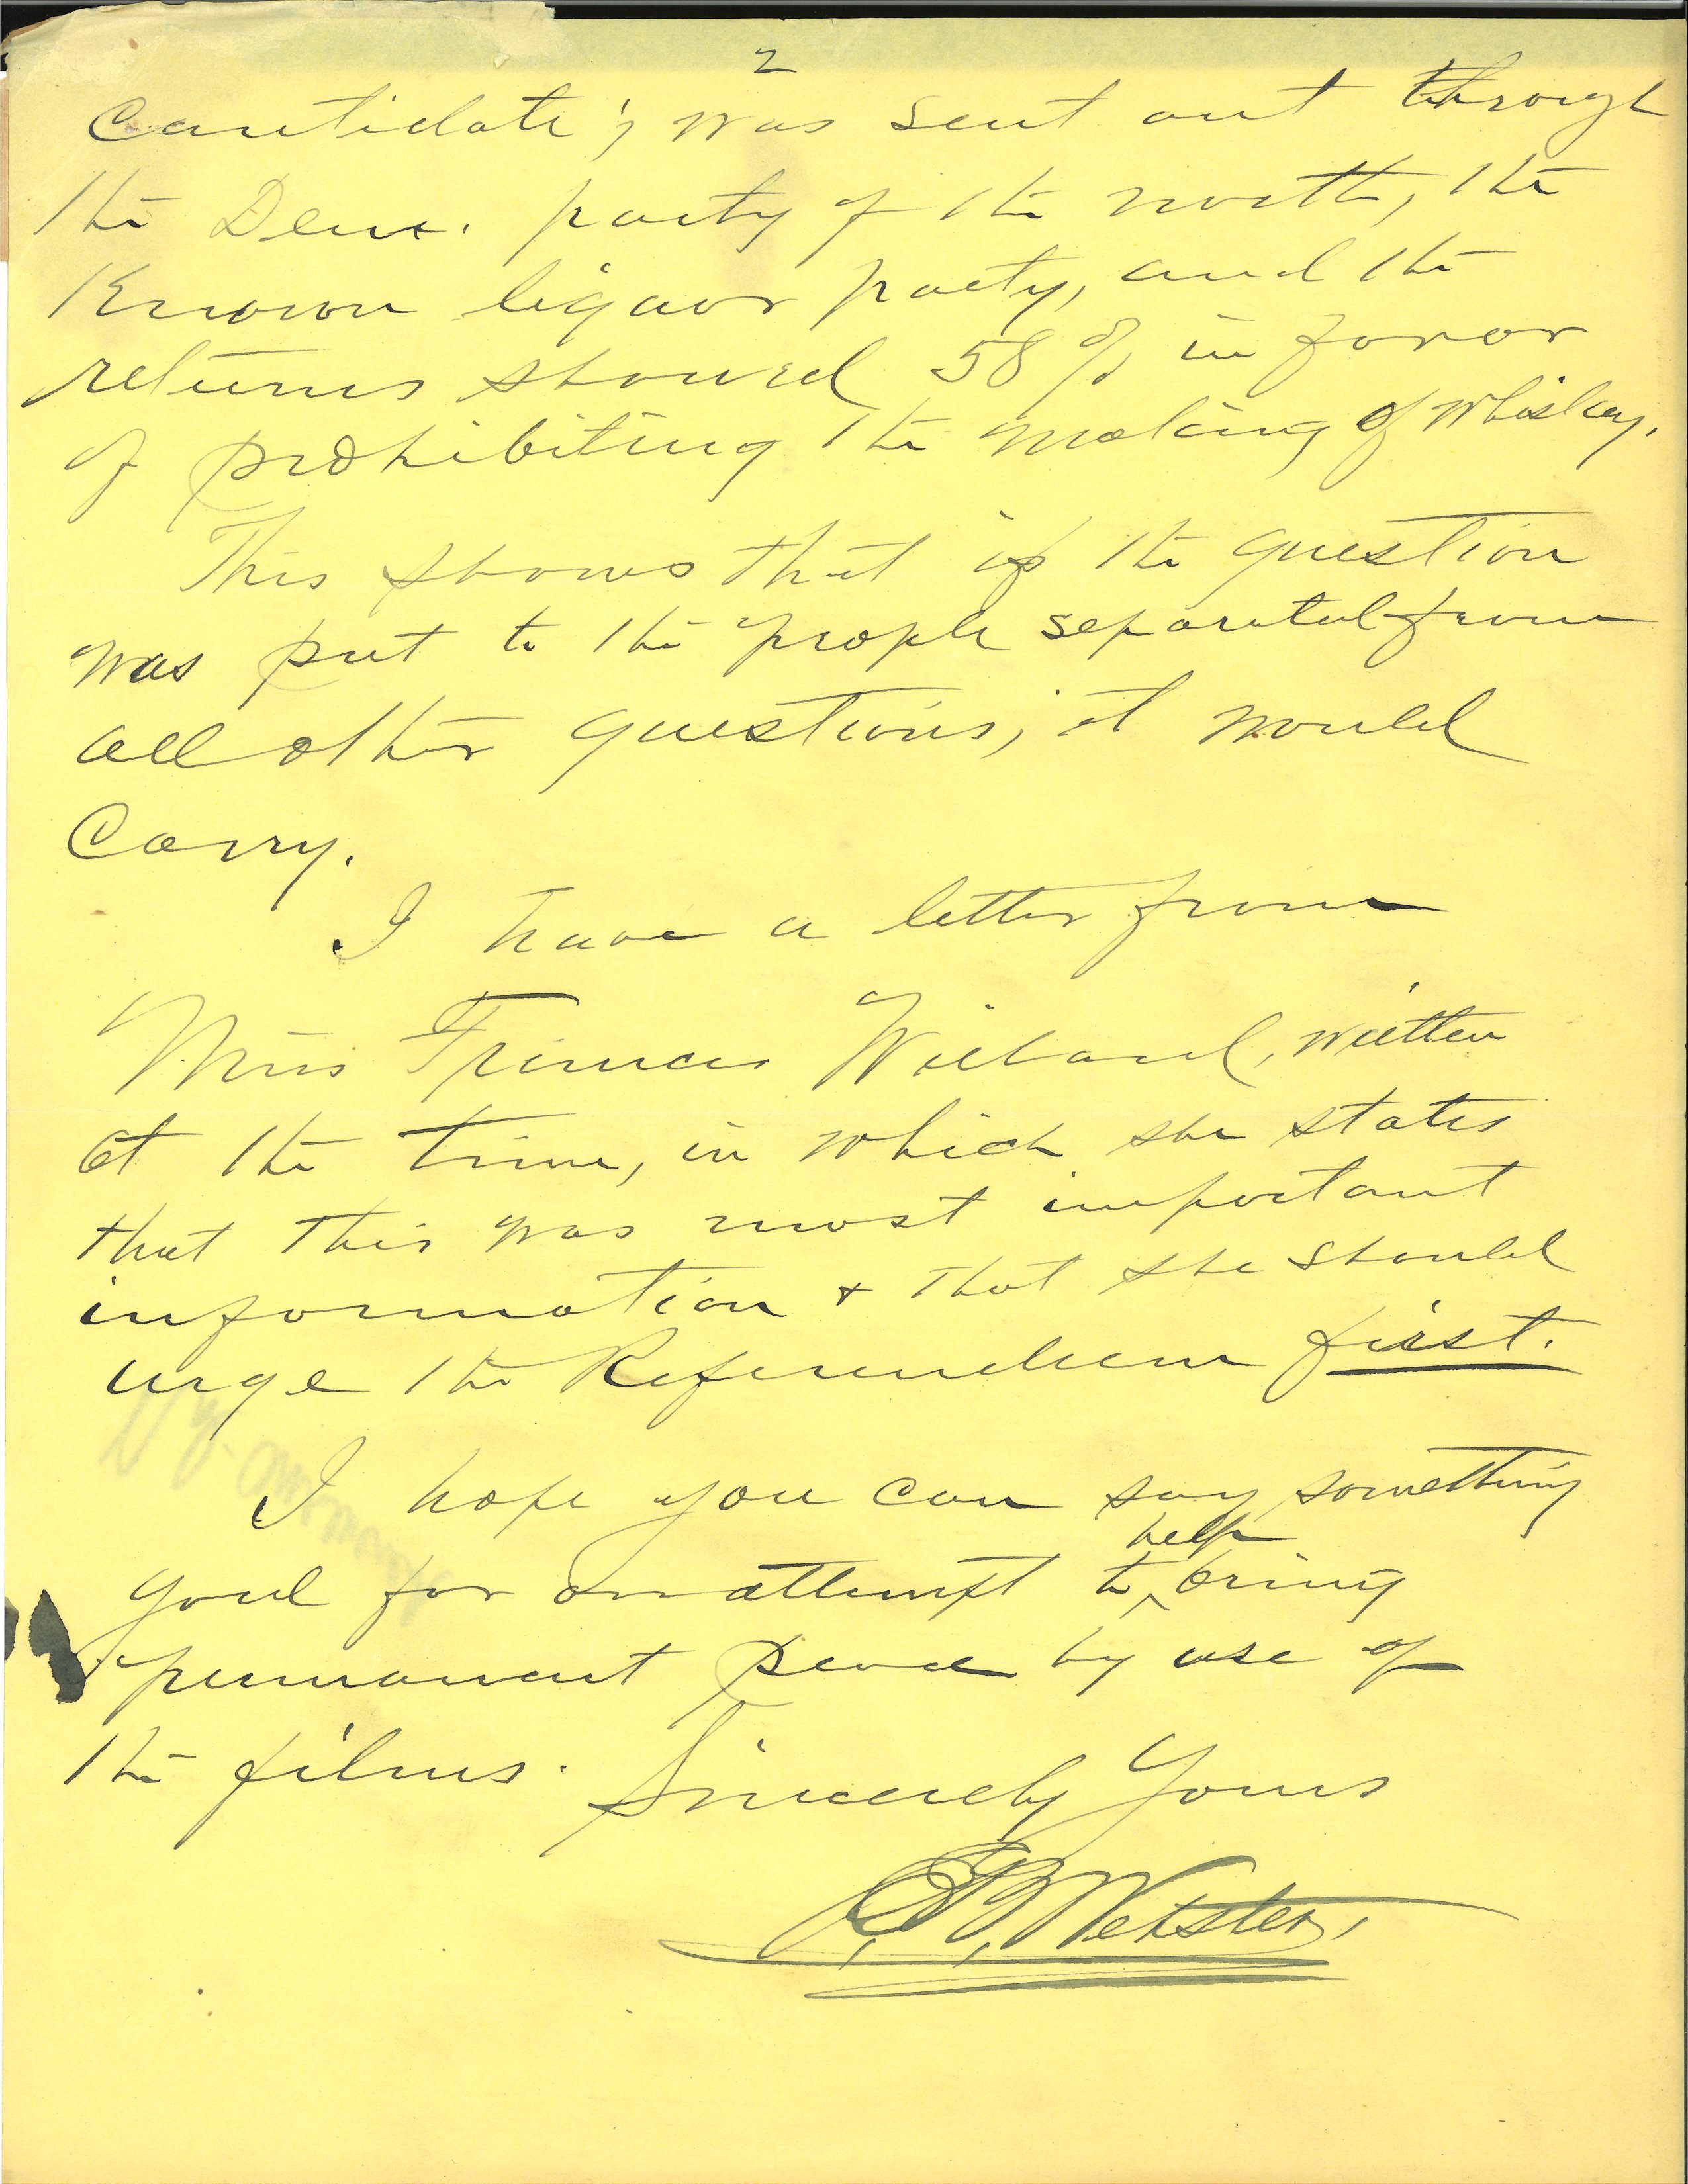 2
Cantidate; was sent out through
the Dem. party of the north, the
Known liquor party, and the
returns showed 58% in favor
of prohibiting the making of whiskey.
This shows that if the question
was put to the people separated from
all other questions, it would
Carry.
I have a letter from
Miss Frances Willard, written
at the time, in which she states
that this was most important
information + that she should
urge the Referendum first.
I hope you can say something
good for an attempt to help bring
permanent peace by use of
the films.
Sincerely Yours
Webster.